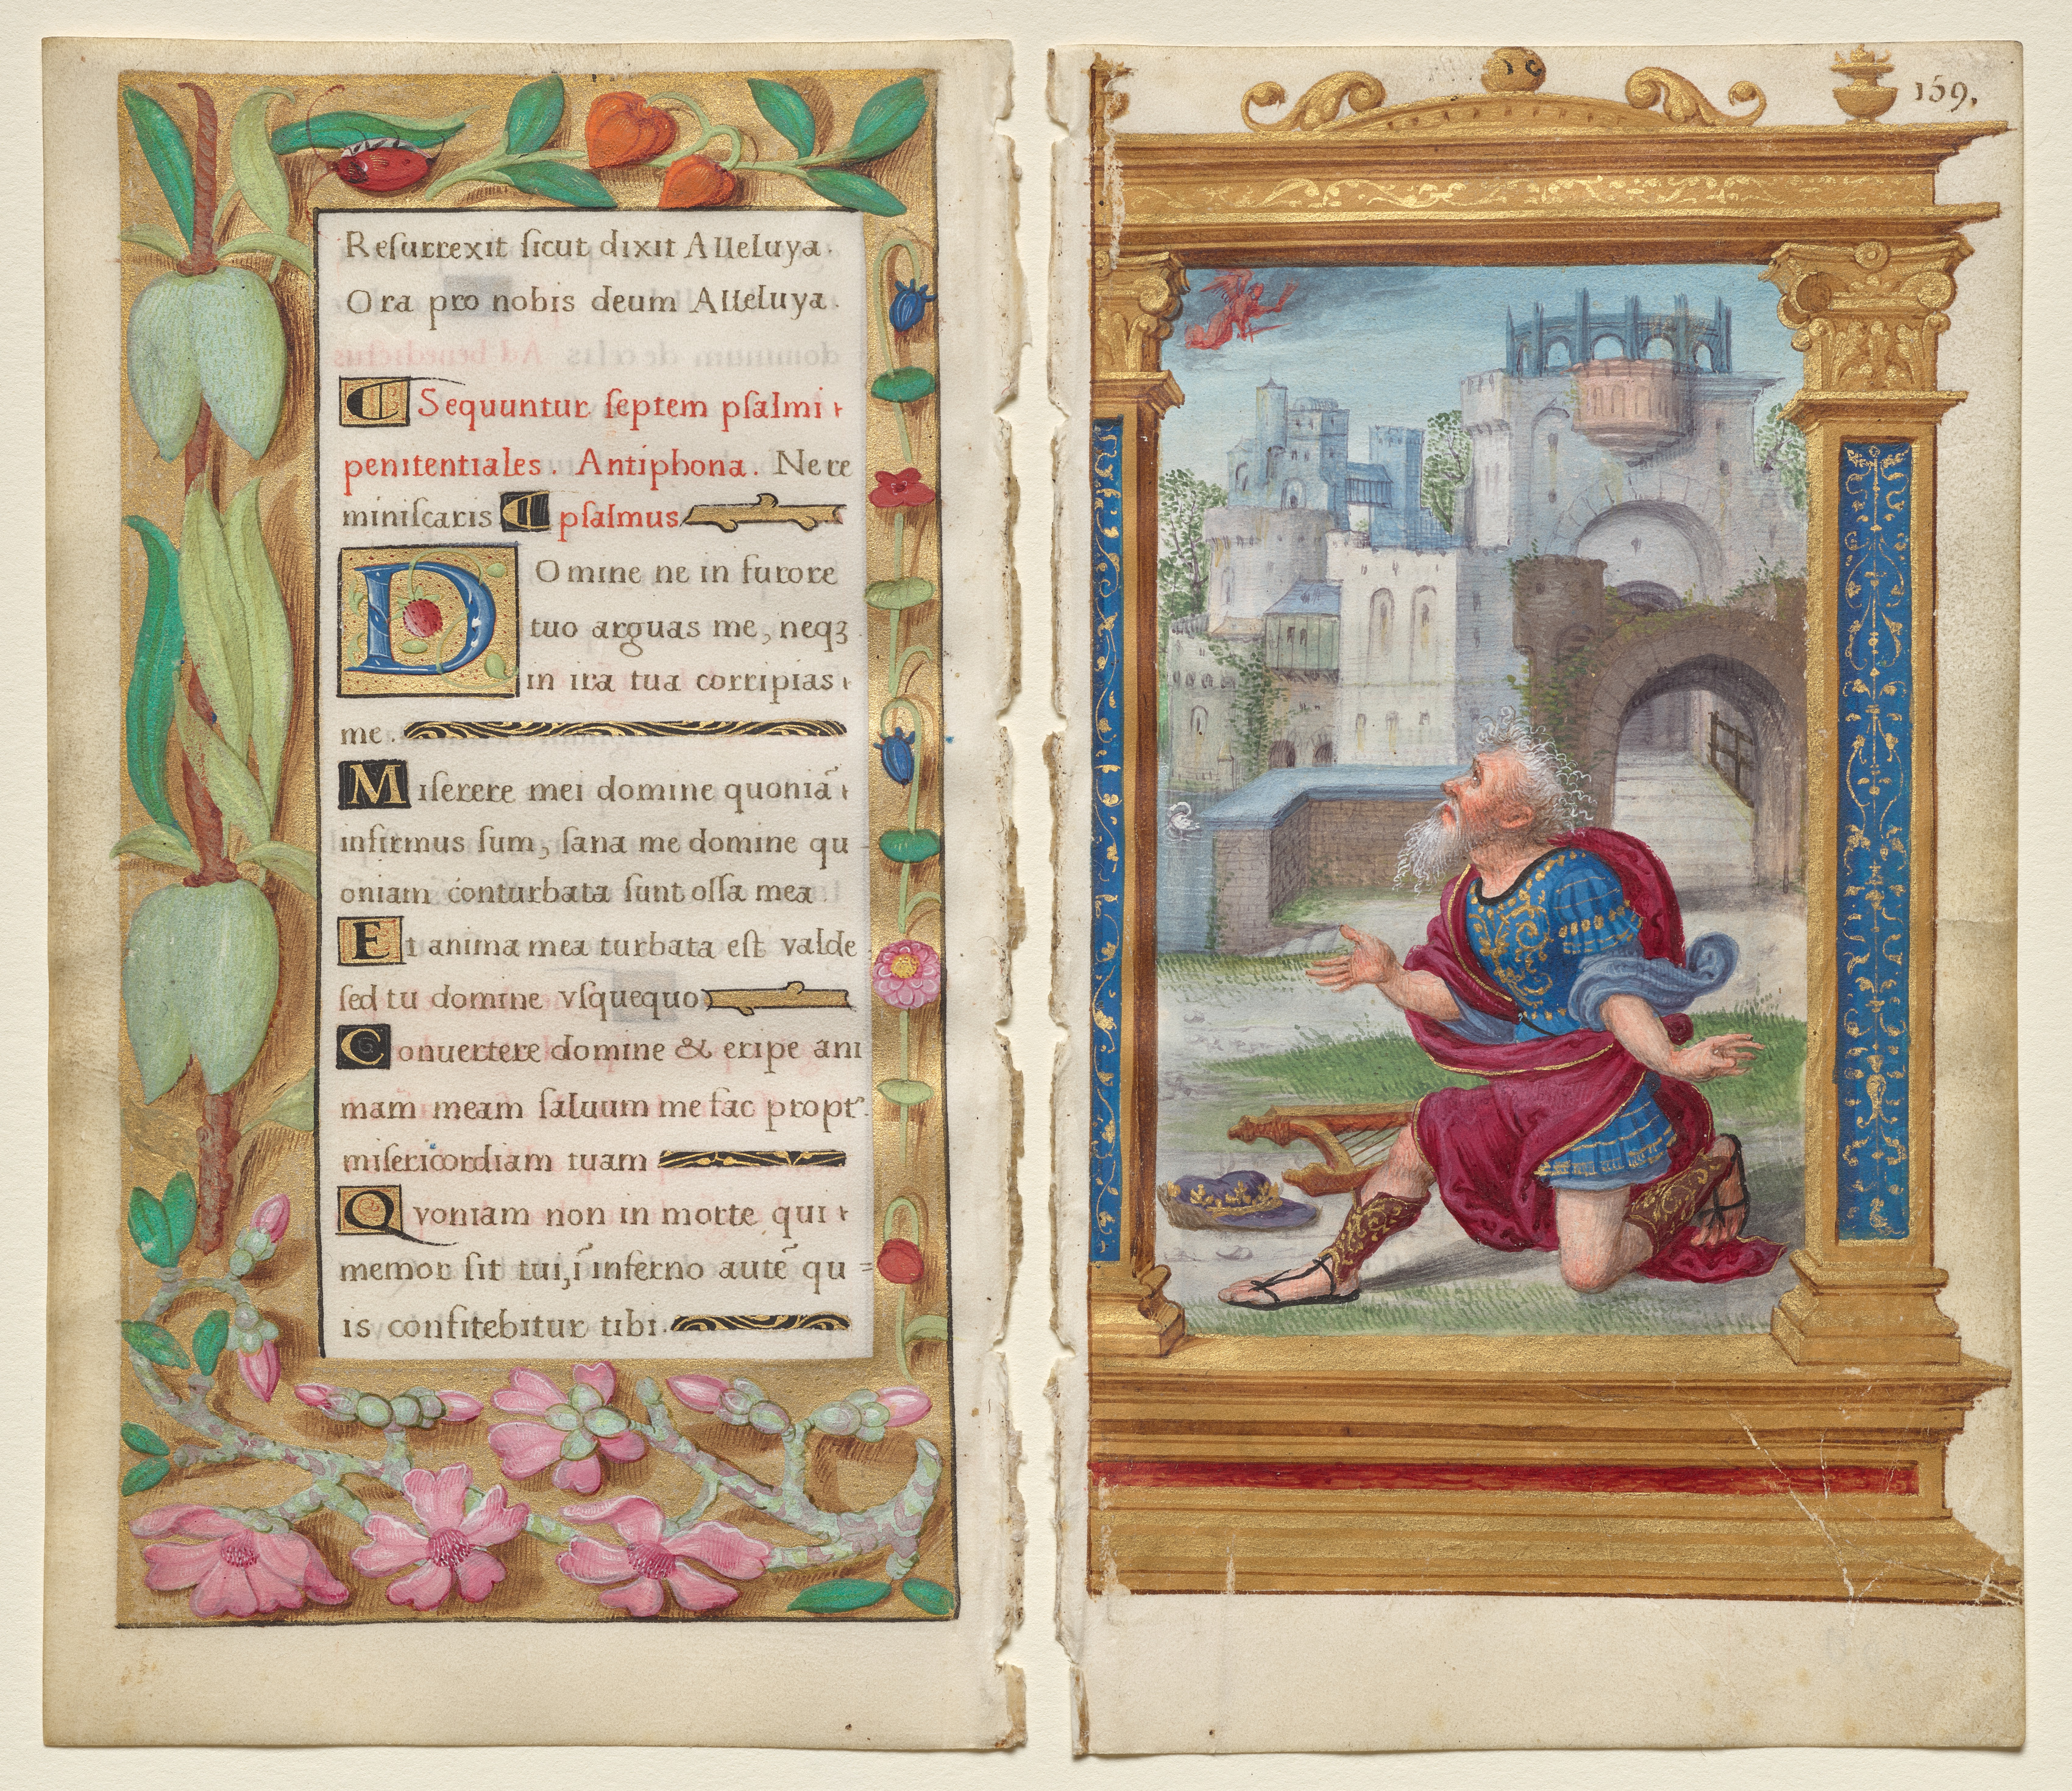 Reſurrexit ſicut dixit Alleluya.
Ora pro nobis deum Alleluya.
Sequuntur ſeptem pſalmi
penitentiales. Antiphona. Ne re
miniſcaris pſalmus
Domine ne in furore
tuo arguas me, neqꝫ
in ira tua corripias
me.
Miſerere mei domine quoniā
infirmus ſum, ſana me domine qu
oniam conturbata ſunt oſſa mea.
Et anima mea turbata eſt valde
ſed tu domine vſquequo
Conuertere domine & eripe ani
mam meam ſaluum me fac propt᷑
miſericordiam tuam
Qvoniam non in morte qui
memor ſit tui, ī inferno autē qu=
is confitebitur tibi.
159.